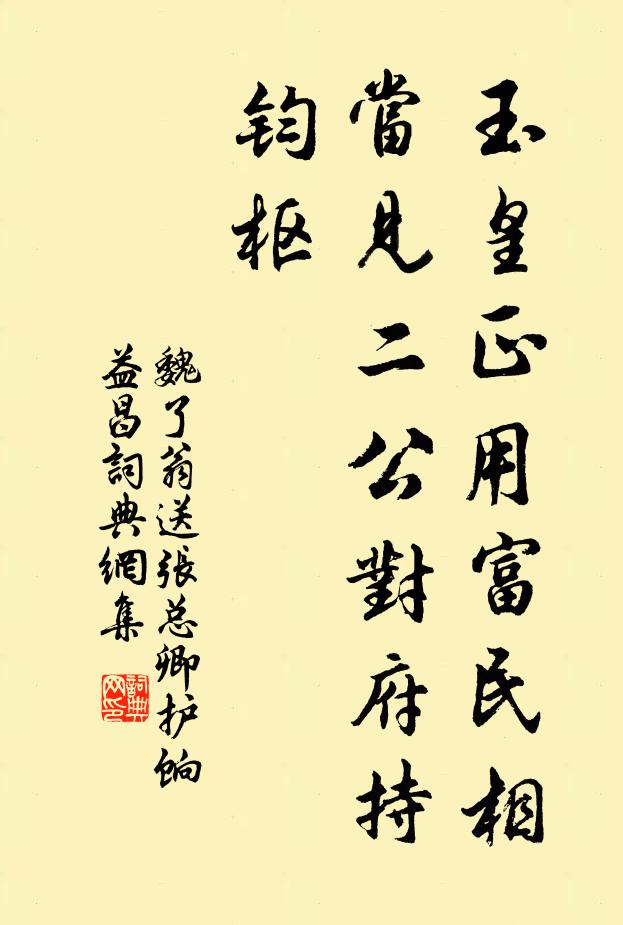 玉皇正用富民相
當見二公對府持
鈞枢
魏了翁送張总卿护餉
益昌詞典網集
詞典网印